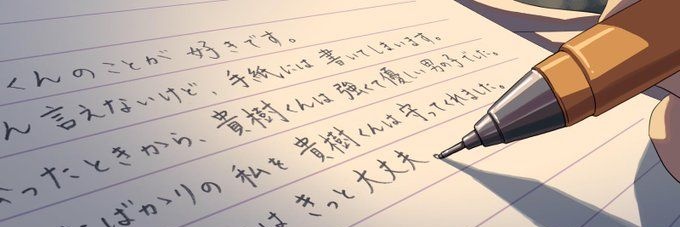 くんのことが 好きです。
ん 言えないけど、手紙には 書いてしまいます。
ったときから、貴樹くんは 強くて優しい男の子でした。
ばかりの 私を 貴樹くんは 守ってくれました。
は きっと 大丈夫。